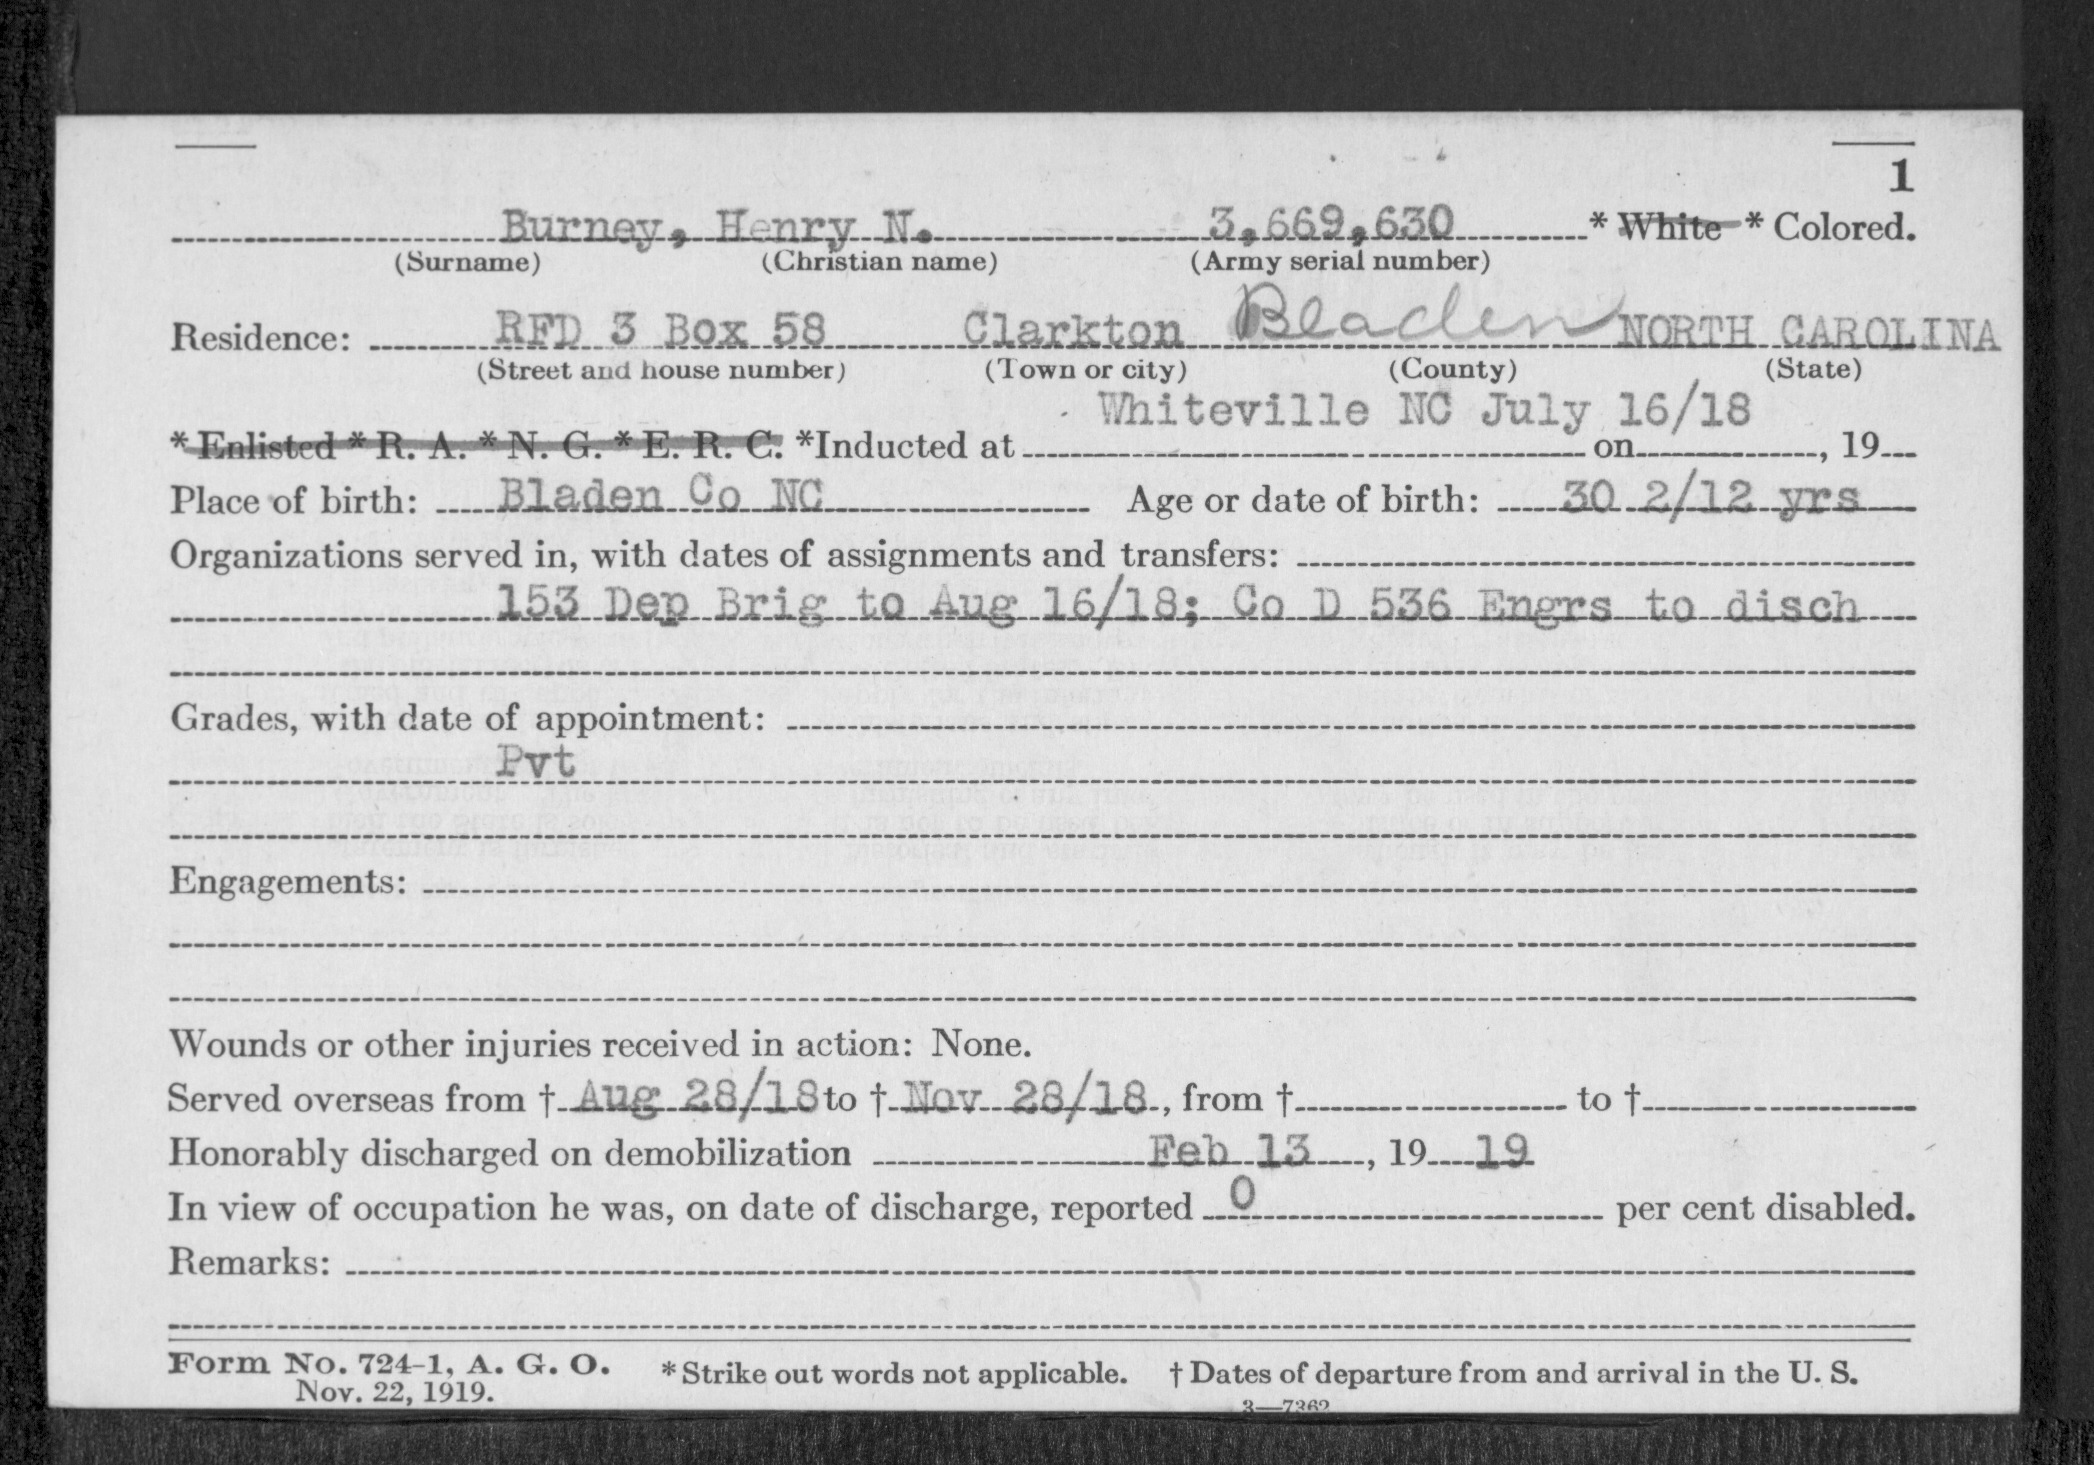 1
Burney, Henry N. 3,669,630 * White * Colored.
(Surname) (Christian name) (Army serial number)
Residence: RFD 3 Box 58 Clarkton Bladen NORTH CAROLINA
(Street and house number) (Town or city) (County) (State)
Whiteville NC July 16/18
* Enlisted * R. A. * N. G. * E. R. C. *Inducted at on , 19
Place of birth: Bladen Co NC Age or date of birth: 30 2/12 yrs
Organizations served in, with dates of assignments and transfers:
153 Dep Brig to Aug 16/18; Co D 536 Engrs to disch
Grades, with date of appointment:
Pvt
Engagements:
Wounds or other injuries received in action: None.
Served overseas from † Aug 28/18 to † Nov 28/18, from † to †
Honorably discharged on demobilization Feb 13, 19 19
In view of occupation he was, on date of discharge, reported 0 per cent disabled.
Remarks:
Form No. 724-1, A. G. O. * Strike out words not applicable. † Dates of departure from and arrival in the U. S.
Nov. 22, 1919.
3—7362